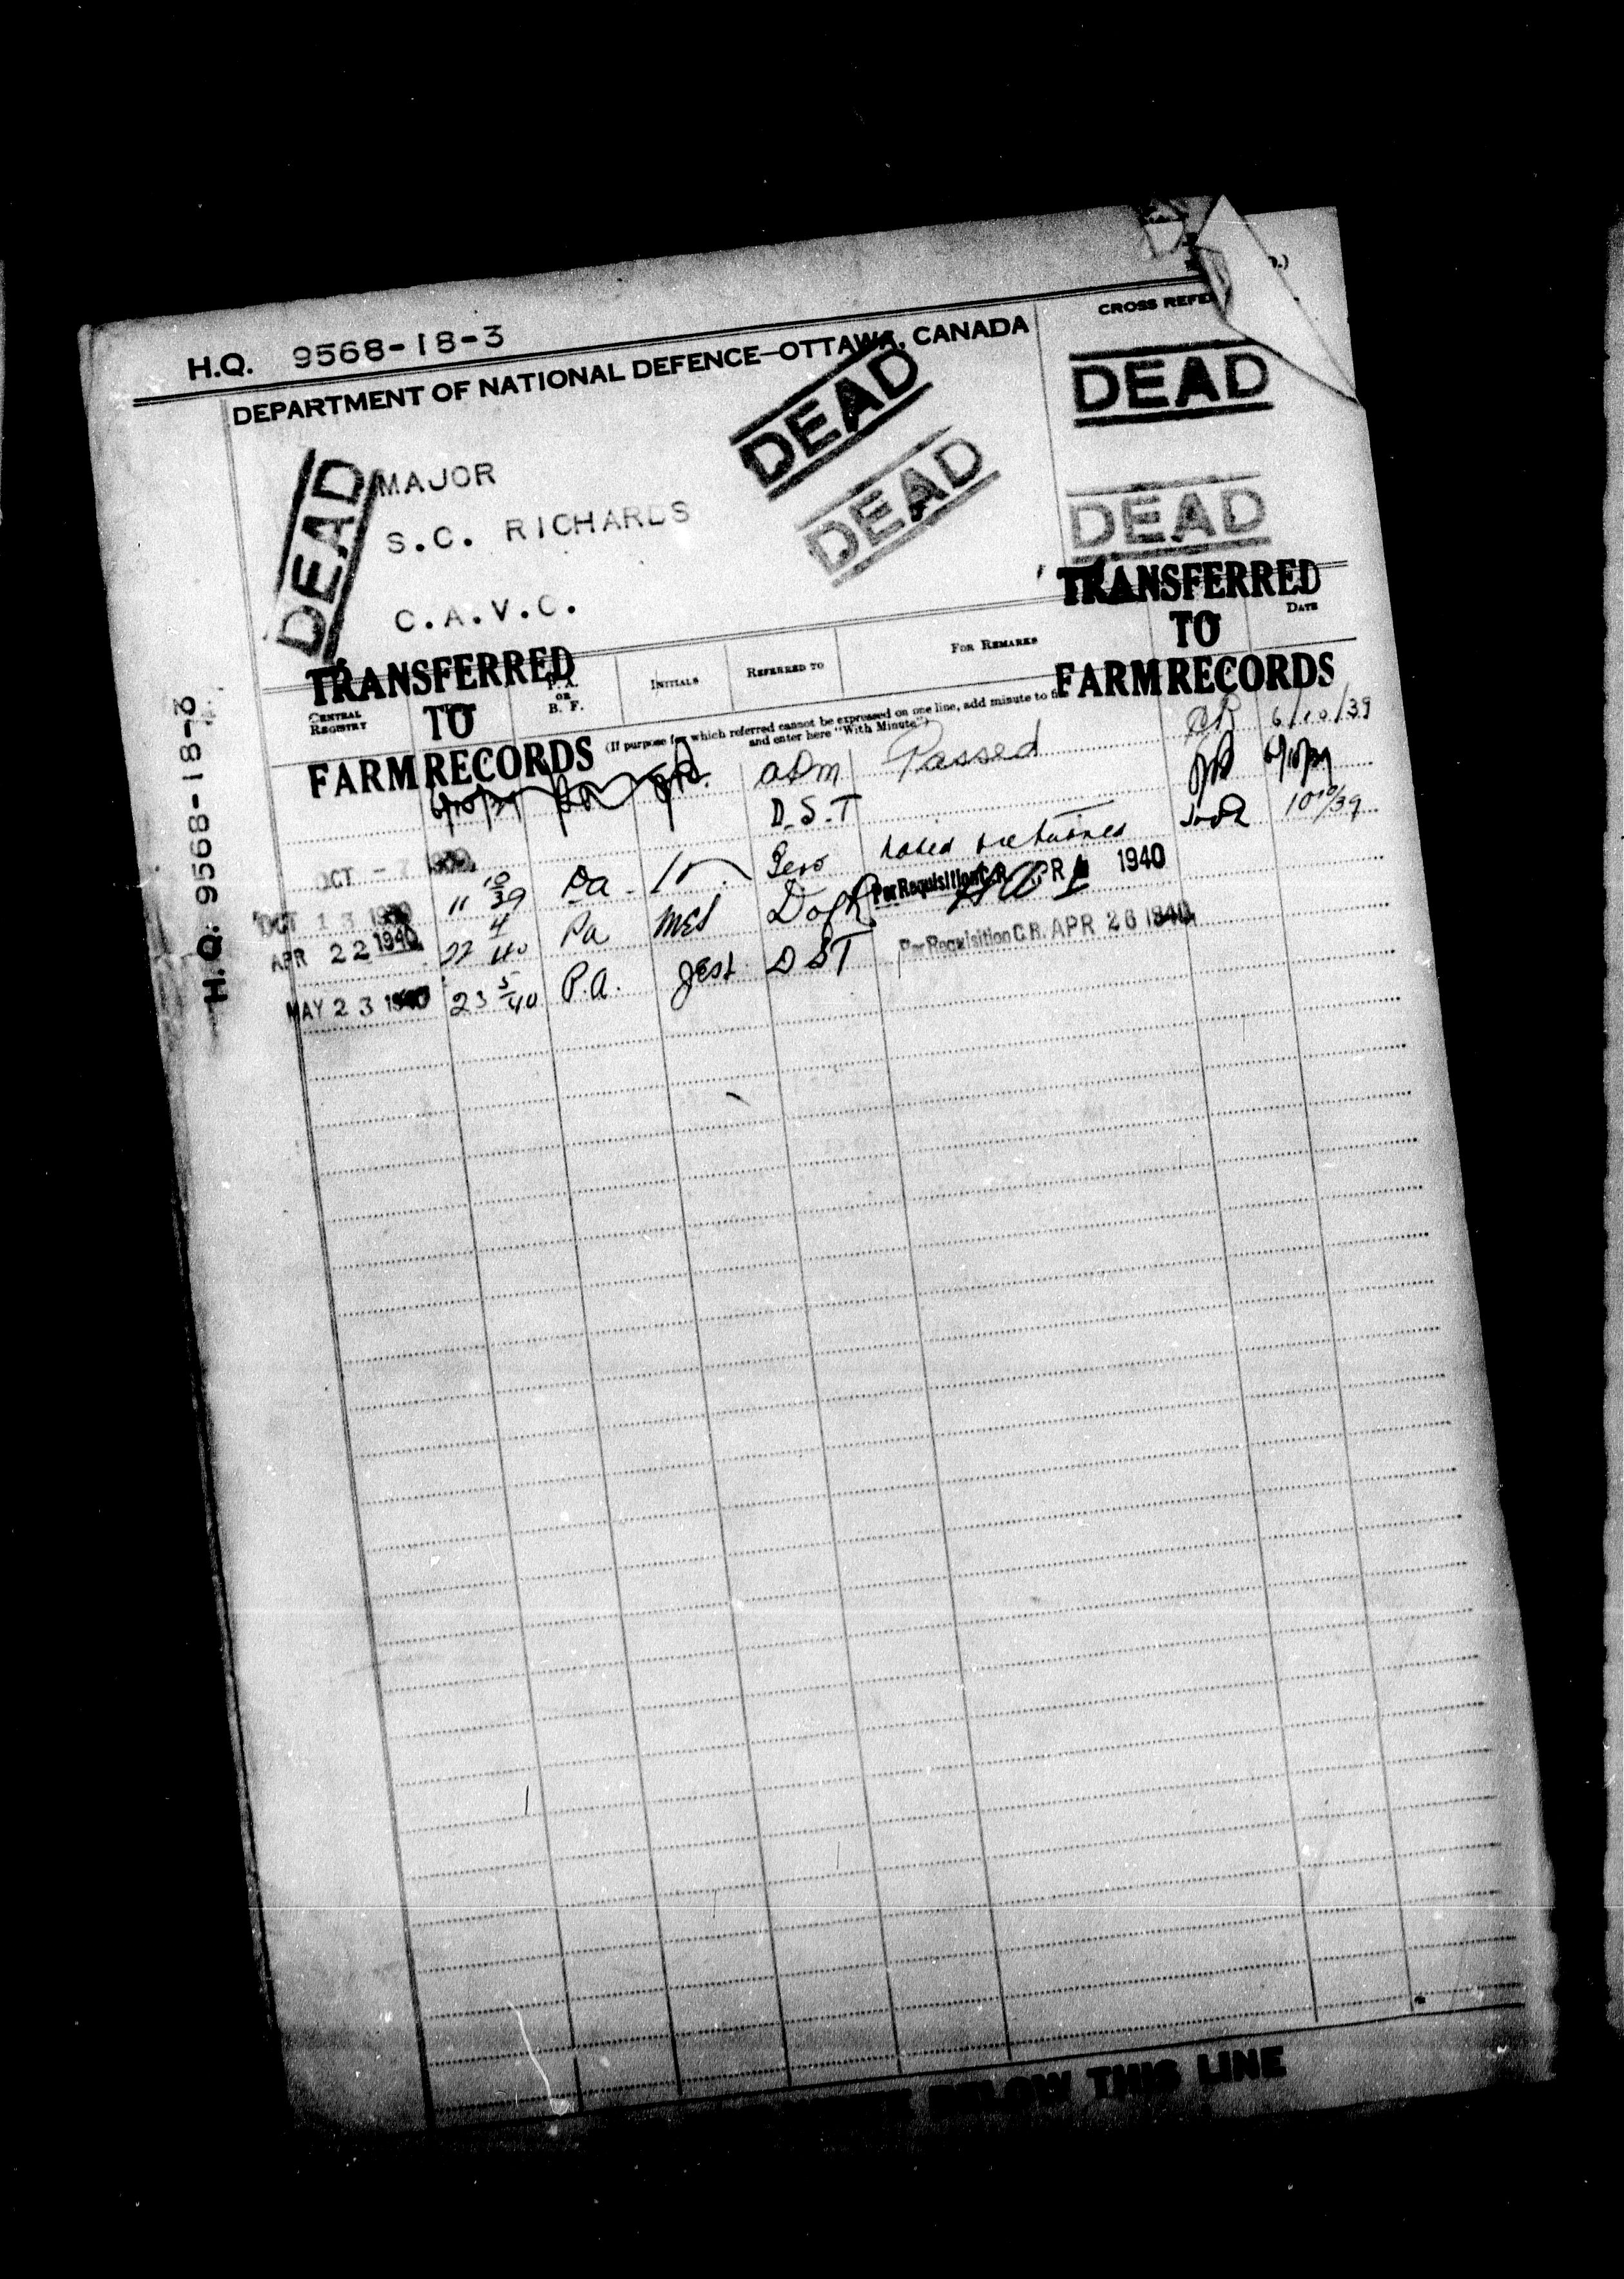 H.Q. 9568-18-3
DEPARTMENT OF NATIONAL DEFENCE—OTTAWA, CANADA
CROSS REFE
DEAD
DEAD
DEAD
DEAD
DEAD
MAJOR
S.C. RICHARDS
C.A.V.C.
TRANSFERRED
TO
FARM RECORDS
TRANSFERRED
TO
FARM RECORDS
CENTRAL REGISTRY
P. A. OR B. F.
INITIALS
REFERRED TO
FOR REMARKS
DATE
(If purpose for which referred cannot be expressed on one line, add minute to
and enter here "With Minute")
adm Passed 6/10/39
D.S.T
OCT - 7
noted returned 10 10/39
OCT 13 11 10/39 Pa
Per Requisition C.R. 1940
APR 22 1940 22 4/40 Pa MES
Per Requisition C.R. APR 26 1940
MAY 23 1940 23 5/40 P.A. DST
H.Q. 9568-18-3
BELOW THIS LINE